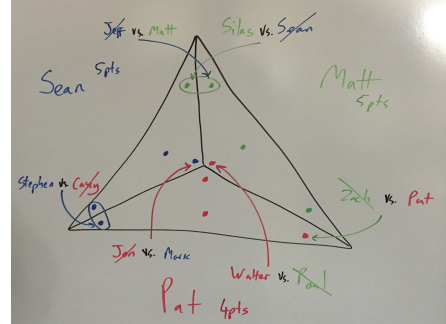 Jeff vs. Matt
Silas vs. Sean
Sean
5pts
Matt
5pts
Stephen vs Casey
Zach vs. Pat
Jon vs. Mark
Walter vs. Paul
Pat 4pts